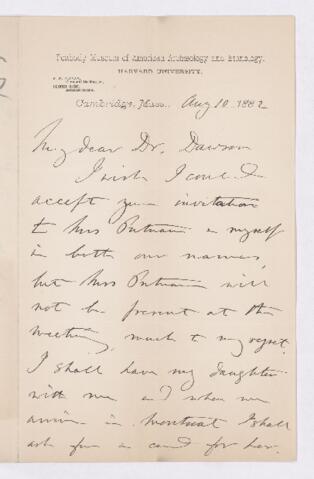 Peabody Museum of American Archaeology and Ethnology,
HARVARD UNIVERSITY.
Cambridge, Mass., Aug 10 1882
My dear Dr. Dawson
I wish I could
accept your invitation
to Mrs Putnam & myself
in both our names,
but Mrs Putnam will
not be present at the
meeting, much to my regret.
I shall have my daughter
with me and when we
arrive in Montreal I shall
ask for a card for her.